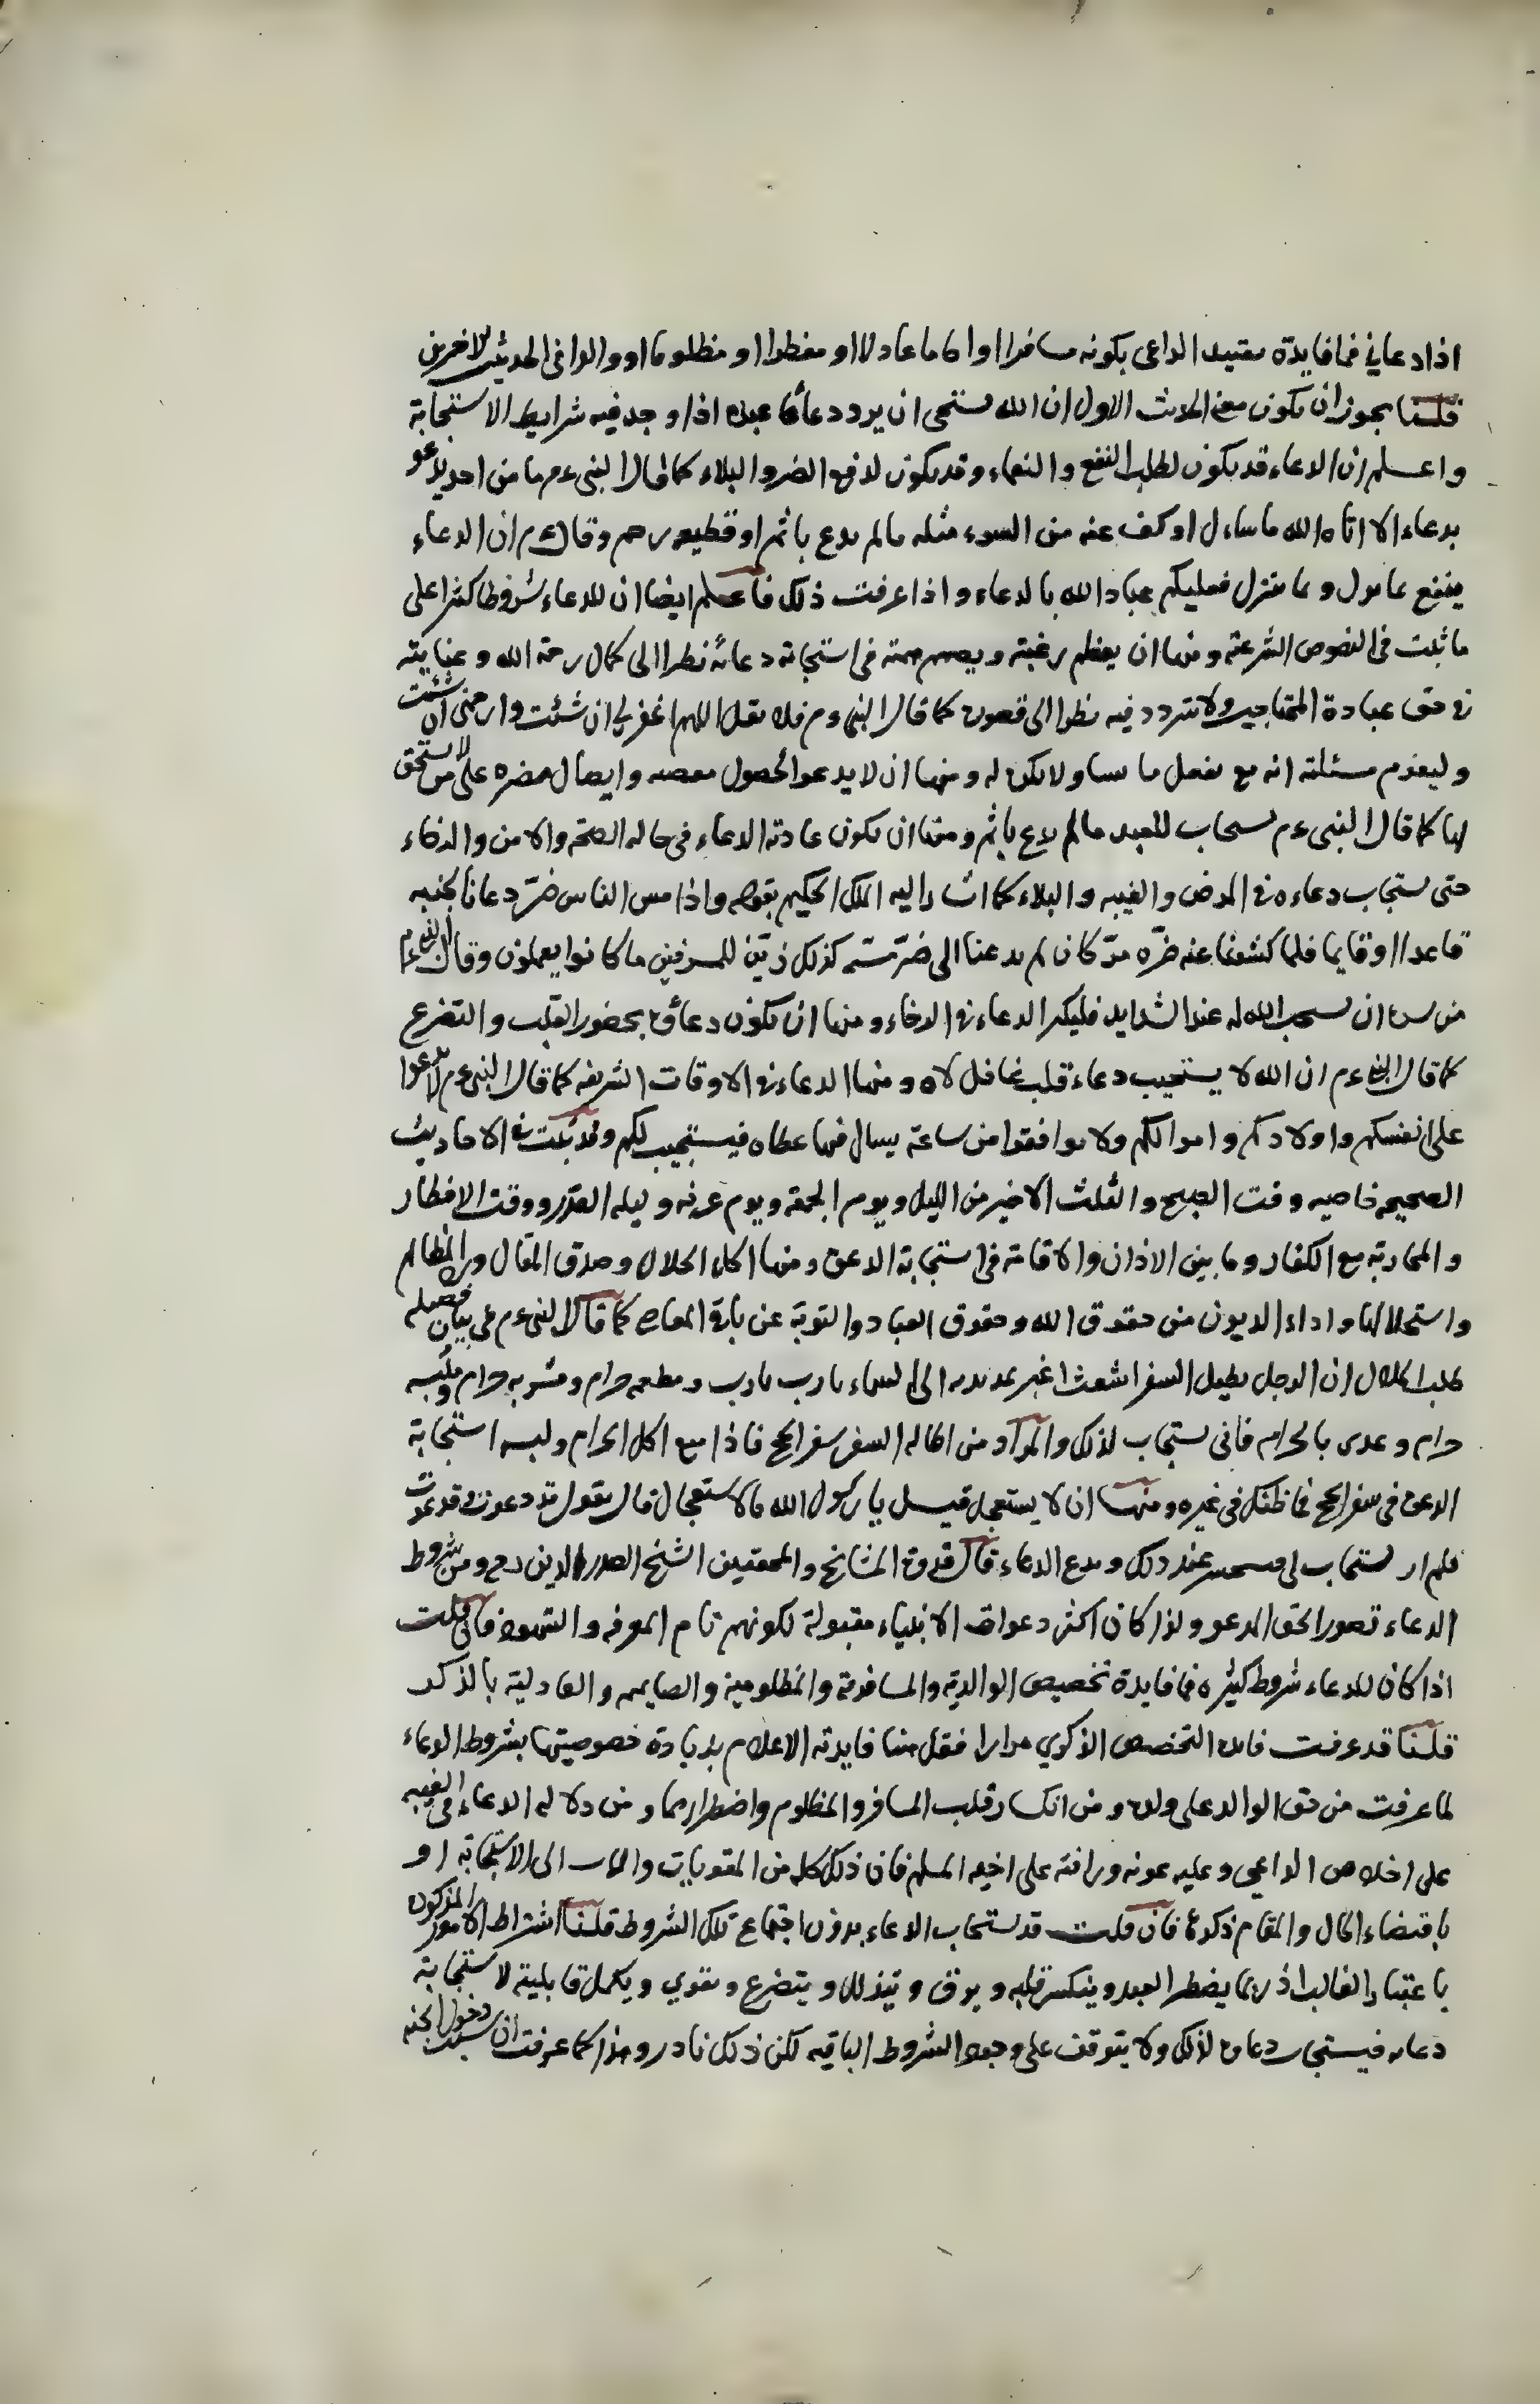 اذا دعاني فما فايدة تقييد الداعى بكونه مسافرا او اماما عادلا او مفطرا او مظلوما او والدا فى الحديثين الاخرين
قلنا يجوز ان يكون معنى الحديث الاول ان الله يستحى ان يرد دعاء عبده اذا وجد فيه شرايط الاستجابة
واعلم ان الدعاء قد يكون لطلب النفع والنعماء وقد يكون لدفع الضر والبلاء كما قال النبى عم ما من احد يدعو
بدعاء الا اتاه الله ما سال او كف عنه من السوء مثله ما لم يدع باثم او قطيعة رحم وقال عم ان الدعاء
ينفع مما نزل ومما ينزل فعليكم عباد الله بالدعاء واذا عرفت ذلك فاعلم ايضا ان للدعاء شروطا كثيرا على
ما ثبت فى النصوص الشرعية ومنها ان يعظم رغبته و همته فى استجابة دعائه نظرا الى كمال رحمة الله وعنايته
فى حق عبادة المحتاجين ولا يتردد فيه نظرا الى قصوره كما قال النبى عم فلا يقل اللهم اغفر لى ان شئت وارحمنى ان شئت
وليعزم مسئلته انه يفعل ما يشاء ولا مكره له ومنها ان لا يدعو لحصول معصية وايصال مضرة على من لا يستحق
لها كما قال النبى عم يستجاب للعبد ما لم يدع باثم ومنها ان يكون عادته الدعاء فى حالة الصحة والامن والرخاء
حتى يستجاب دعاءه فى المرض والغيبة والبلاء كما اشار اليه الملك الحكيم بقوله واذا مس الناس ضر دعانا لجنبه
قاعدا او قايما فلما كشفنا عنه ضره مر كان لم يدعنا الى ضر مسه كذلك زين للمسرفين ما كانوا يعملون وقال النبى عم
من سره ان يستجيب الله له عند الشدايد فليكثر الدعاء فى الرخاء ومنها ان يكون دعاؤه بحضور القلب والتضرع
كما قال النبى عم ان الله لا يستجيب دعاء قلب غافل لاه ومنها الدعاء فى الاوقات الشريفة كما قال النبى عم لا تدعوا
على انفسكم واولادكم واموالكم ولا توافقوا من ساعة يسال فيها عطاء فيستجيب لكم وقد ثبت فى الاحاديث
الصحيحة خاصية وقت الصبح والثلث الاخير من الليل ويوم الجمعة ويوم عرفة وليلة القدر ووقت الافطار
والمحاربة مع الكفار وما بين الاذان والاقامة فى استجابة الدعوة ومنها اكل الحلال وصدق المقال ورد المظالم
واستحلالها واداء الديون من حقوق الله وحقوق العباد والتوبة عن المعاصى كما قال النبى عم فى بيان فضيلة
طلب الحلال ان الرجل يطيل السفر اشعث اغبر يمد يديه الى السماء يا رب يا رب ومطعمه حرام ومشربه حرام وملبسه
حرام وغذى بالحرام فانى يستجاب لذلك والمراد من اطالة السفر سفر الحج فاذا منع اكل الحرام ولبسه استجابة
الدعوة فى سفر الحج فما ظنك فى غيره ومنها ان لا يستعجل قيل يا رسول الله ما الاستعجال قال يقول قد دعوت وقد دعوت
فلم ار يستجاب لى فيستحسر عند ذلك ويدع الدعاء قال قدوة المشايخ والمحققين الشيخ صدر الدين رح ومن شروط
الدعاء تصور الحق المدعو ولذا كان اكثر دعوات الانبياء مقبولة لكونهم تام المعرفة والشهود فان قلت
اذا كان للدعاء شروط كثيره فما فايدة تخصيص الوالدية والمسافرية والمظلومية والصايمية والعادلية بالذكر
قلنا قد عرفت فايدة التخصيص الذكوي مرارا فقل هنا فايدته الاعلام بزيادة خصوصيتها بشروط الدعاء
لما عرفت من حق الوالد على ولده ومن انكسار قلب المسافر والمظلوم واضطرارهما ومن دلالة الدعاء فى الغيبة
على اخلاص الداعى وعليه عونه ورافته على اخيه المسلم فان ذلك كله من المقويات الى الاستجابة او
باقتضاء الحال والمقام ذكرها فان قلت قد يستجاب الدعاء بدون اجتماع تلك الشروط قلنا اشتراط الامور المذكورة
باعتبار الغالب اذ ربما يضطر العبد وينكسر قلبه ويرق ويتذلل ويتضرع ويقوي ويكمل قابلية لاستجابة
دعائه فيستجاب دعاؤه لذلك ولا يتوقف على وجود الشروط الباقية لكن ذلك نادر وهذا كما عرفت ان سبب دخول الجنة